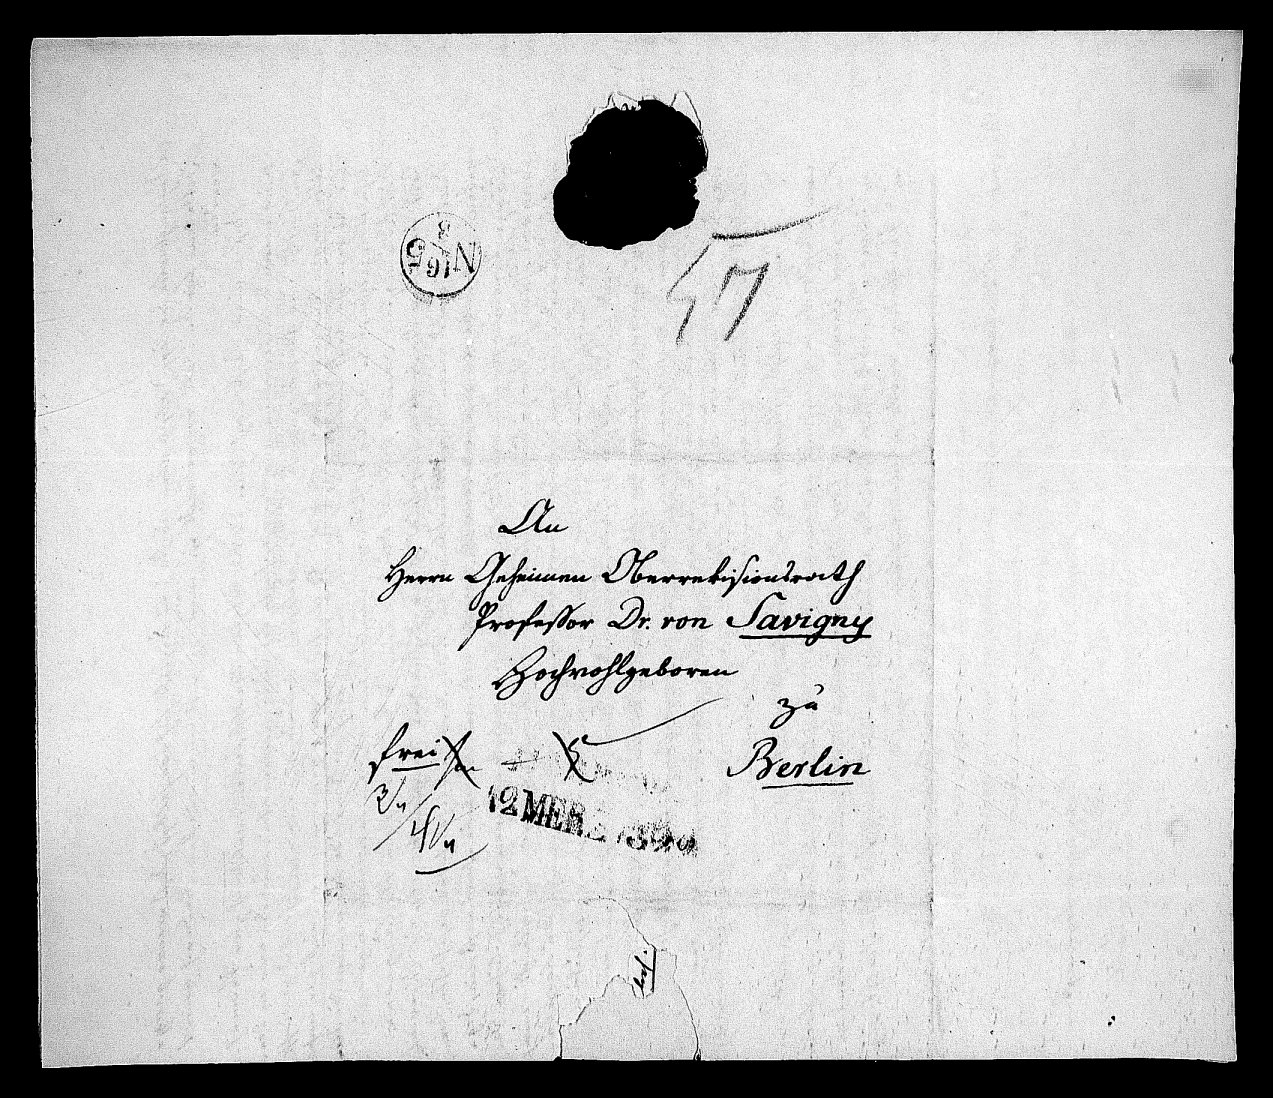 N 165
8
47
An
Herrn Geheimen Oberrevisionsrath
Professor Dr. von Savigny
Hochwohlgeboren
zu
Berlin
frei
12 MERZ